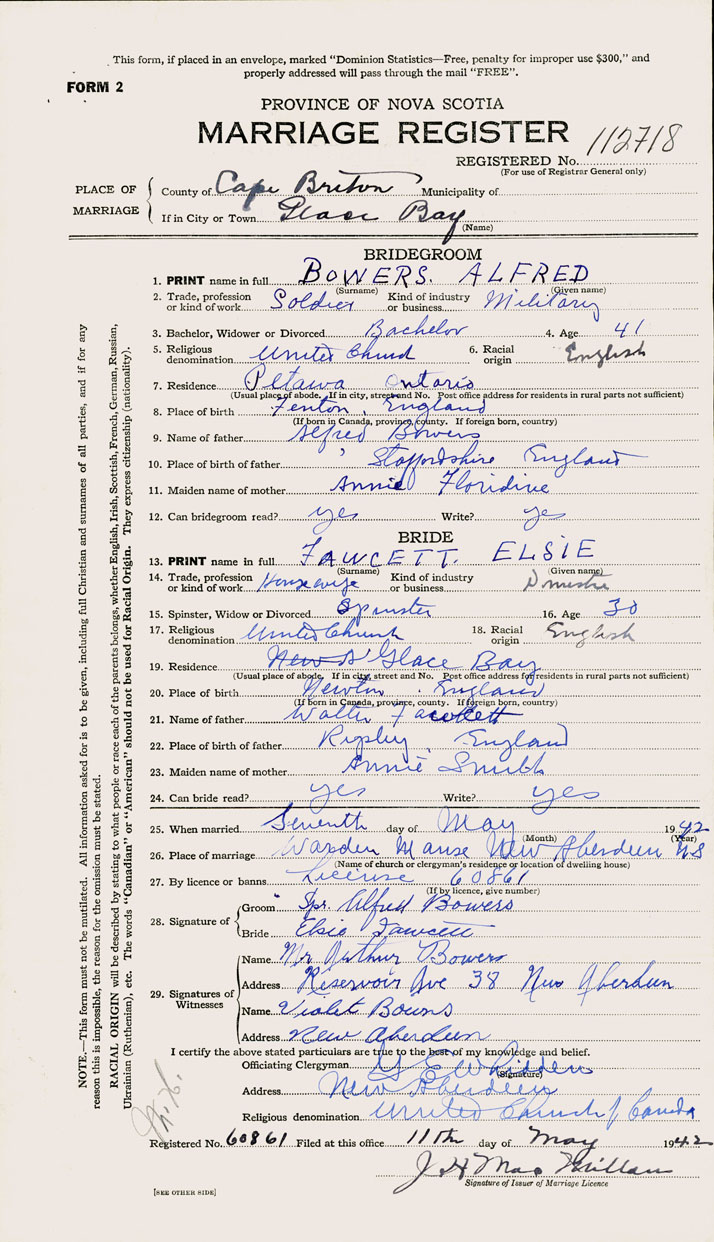 This form, if placed in an envelope, marked "Dominion Statistics—Free, penalty for improper use $300," and
properly addressed will pass through the mail "FREE".
FORM 2
PROVINCE OF NOVA SCOTIA
MARRIAGE REGISTER
112718
REGISTERED No.
(For use of Registrar General only)
PLACE OF MARRIAGE
County of Cape Briton Municipality of
If in City or Town Glace Bay
(Name)
BRIDEGROOM
1. PRINT name in full BOWERS. ALFRED
(Surname) (Given name)
2. Trade, profession or kind of work Soldier Kind of industry or business Military
3. Bachelor, Widower or Divorced Bachelor 4. Age 41
5. Religious denomination United Church 6. Racial origin English
7. Residence Petawa Ontario
(Usual place of abode. If in city, street and No. Post office address for residents in rural parts not sufficient)
8. Place of birth Fenton, England
(If born in Canada, province, county. If foreign born, country)
9. Name of father Alfred Bowers
10. Place of birth of father Staffordshire England
11. Maiden name of mother Annie Floridine
12. Can bridegroom read? yes Write? yes
BRIDE
13. PRINT name in full FAWCETT. ELSIE
(Surname) (Given name)
14. Trade, profession or kind of work Housewife Kind of industry or business Domestic
15. Spinster, Widow or Divorced Spinster 16. Age 30
17. Religious denomination United Church 18. Racial origin English
19. Residence Glace Bay
(Usual place of abode. If in city, street and No. Post office address for residents in rural parts not sufficient)
20. Place of birth Newton . England
(If born in Canada, province, county. If foreign born, country)
21. Name of father Walter Fawcett
22. Place of birth of father Ripley, England
23. Maiden name of mother Annie Smith
24. Can bride read? yes Write? yes
25. When married Seventh day of May 1942
(Month) (Year)
26. Place of marriage Warden Manse New Aberdeen NS
(Name of church or clergyman's residence or location of dwelling house)
27. By licence or banns License 60861
(If by licence, give number)
28. Signature of
Groom Spr. Alfred Bowers
Bride Elsie Fawcett
29. Signatures of Witnesses
Name Mr Arthur Bowers
Address Reservoir Ave 38 New Aberdeen
Name Violet Bowers
Address New Aberdeen
I certify the above stated particulars are true to the best of my knowledge and belief.
Officiating Clergyman G E Whidden
(Signature)
Address New Aberdeen
Religious denomination United Church of Canada
Registered No. 60861 Filed at this office 11th day of May 1942
J H MacMillan
Signature of Issuer of Marriage Licence
[SEE OTHER SIDE]
NOTE.—This form must not be mutilated. All information asked for is to be given, including full Christian and surnames of all parties, and if for any
reason this is impossible, the reason for the omission must be stated.
RACIAL ORIGIN will be described by stating to what people or race each of the parents belongs, whether English, Irish, Scottish, French, German, Russian,
Ukrainian (Ruthenian), etc. The words "Canadian" or "American" should not be used for Racial Origin. They express citizenship (nationality).